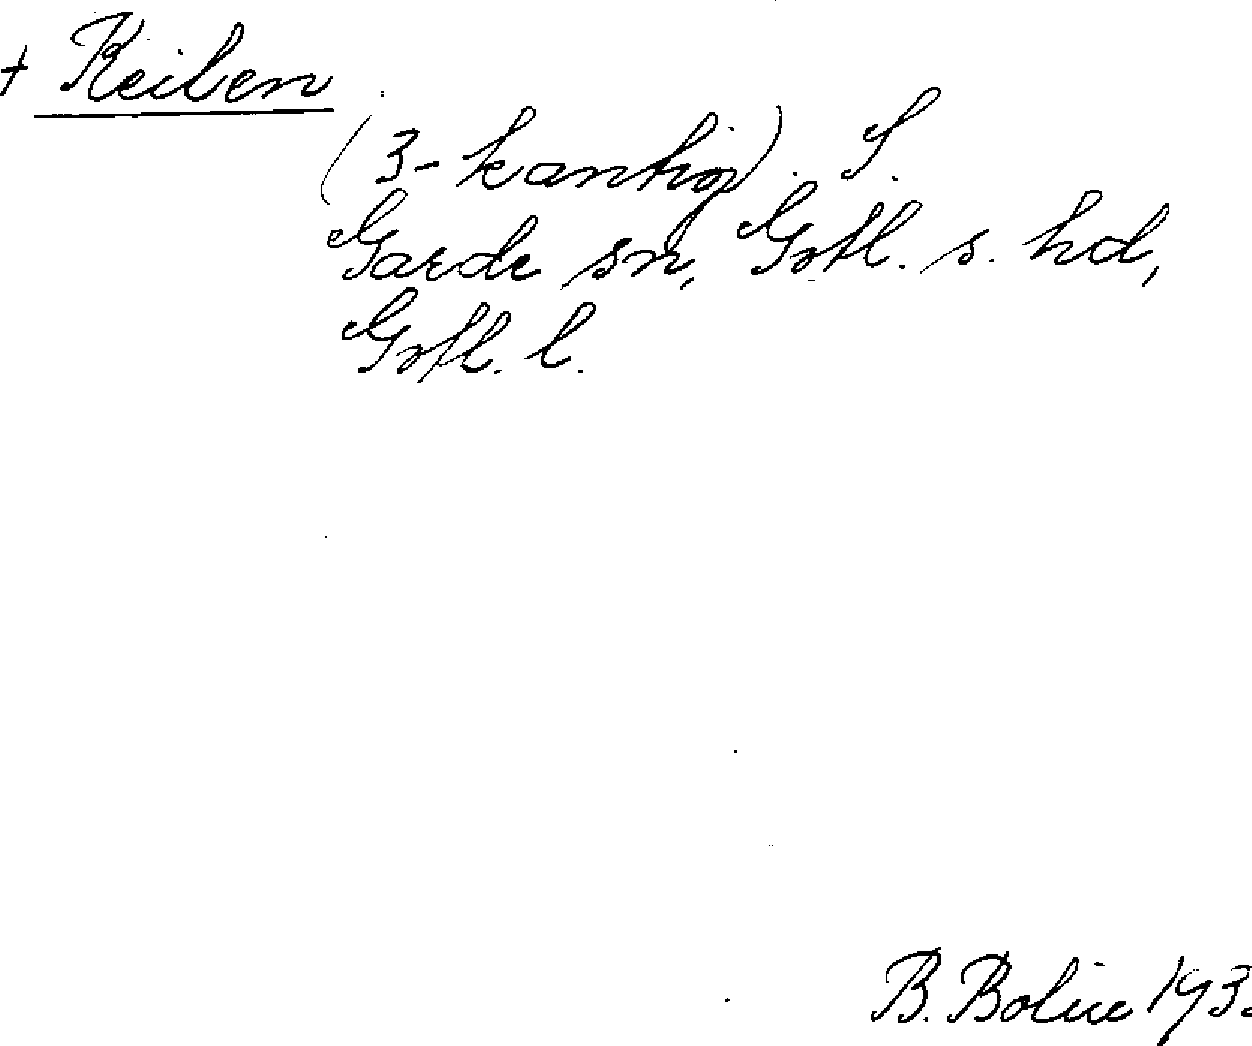 + Reiben
(3-kantig). S.
Garde sn, Gotl. s. hd,
Gotl. l.
B. Bolin 193